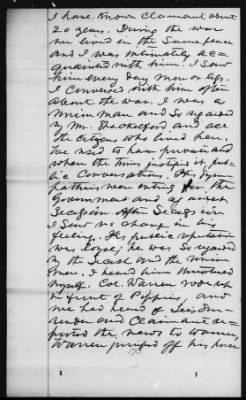 I have known Claimant about
20 years. During the war
he lived in the same place
and I was intimately ac-
quainted with him. I saw
him every day more or less.
I conversed with him often
about the war. I was a
Union man and so regarded
by Mr. Shackelford and all
the citizens who lived here.
We used to have private and
when the times justified it pub-
lic conversations. His sym-
pathies were entirely for the
Government and against
Secession. After Secession
I saw no change in his
feeling. His public reputation
was loyal; he was so regarded
by the Secesh and the Union
men. I heard him threatened
myself. Col. Warren rode up
in front of and
we had heard of Lee's Sur-
render and Claimant re-
ported the news to Warren
Warren jumped off his horse